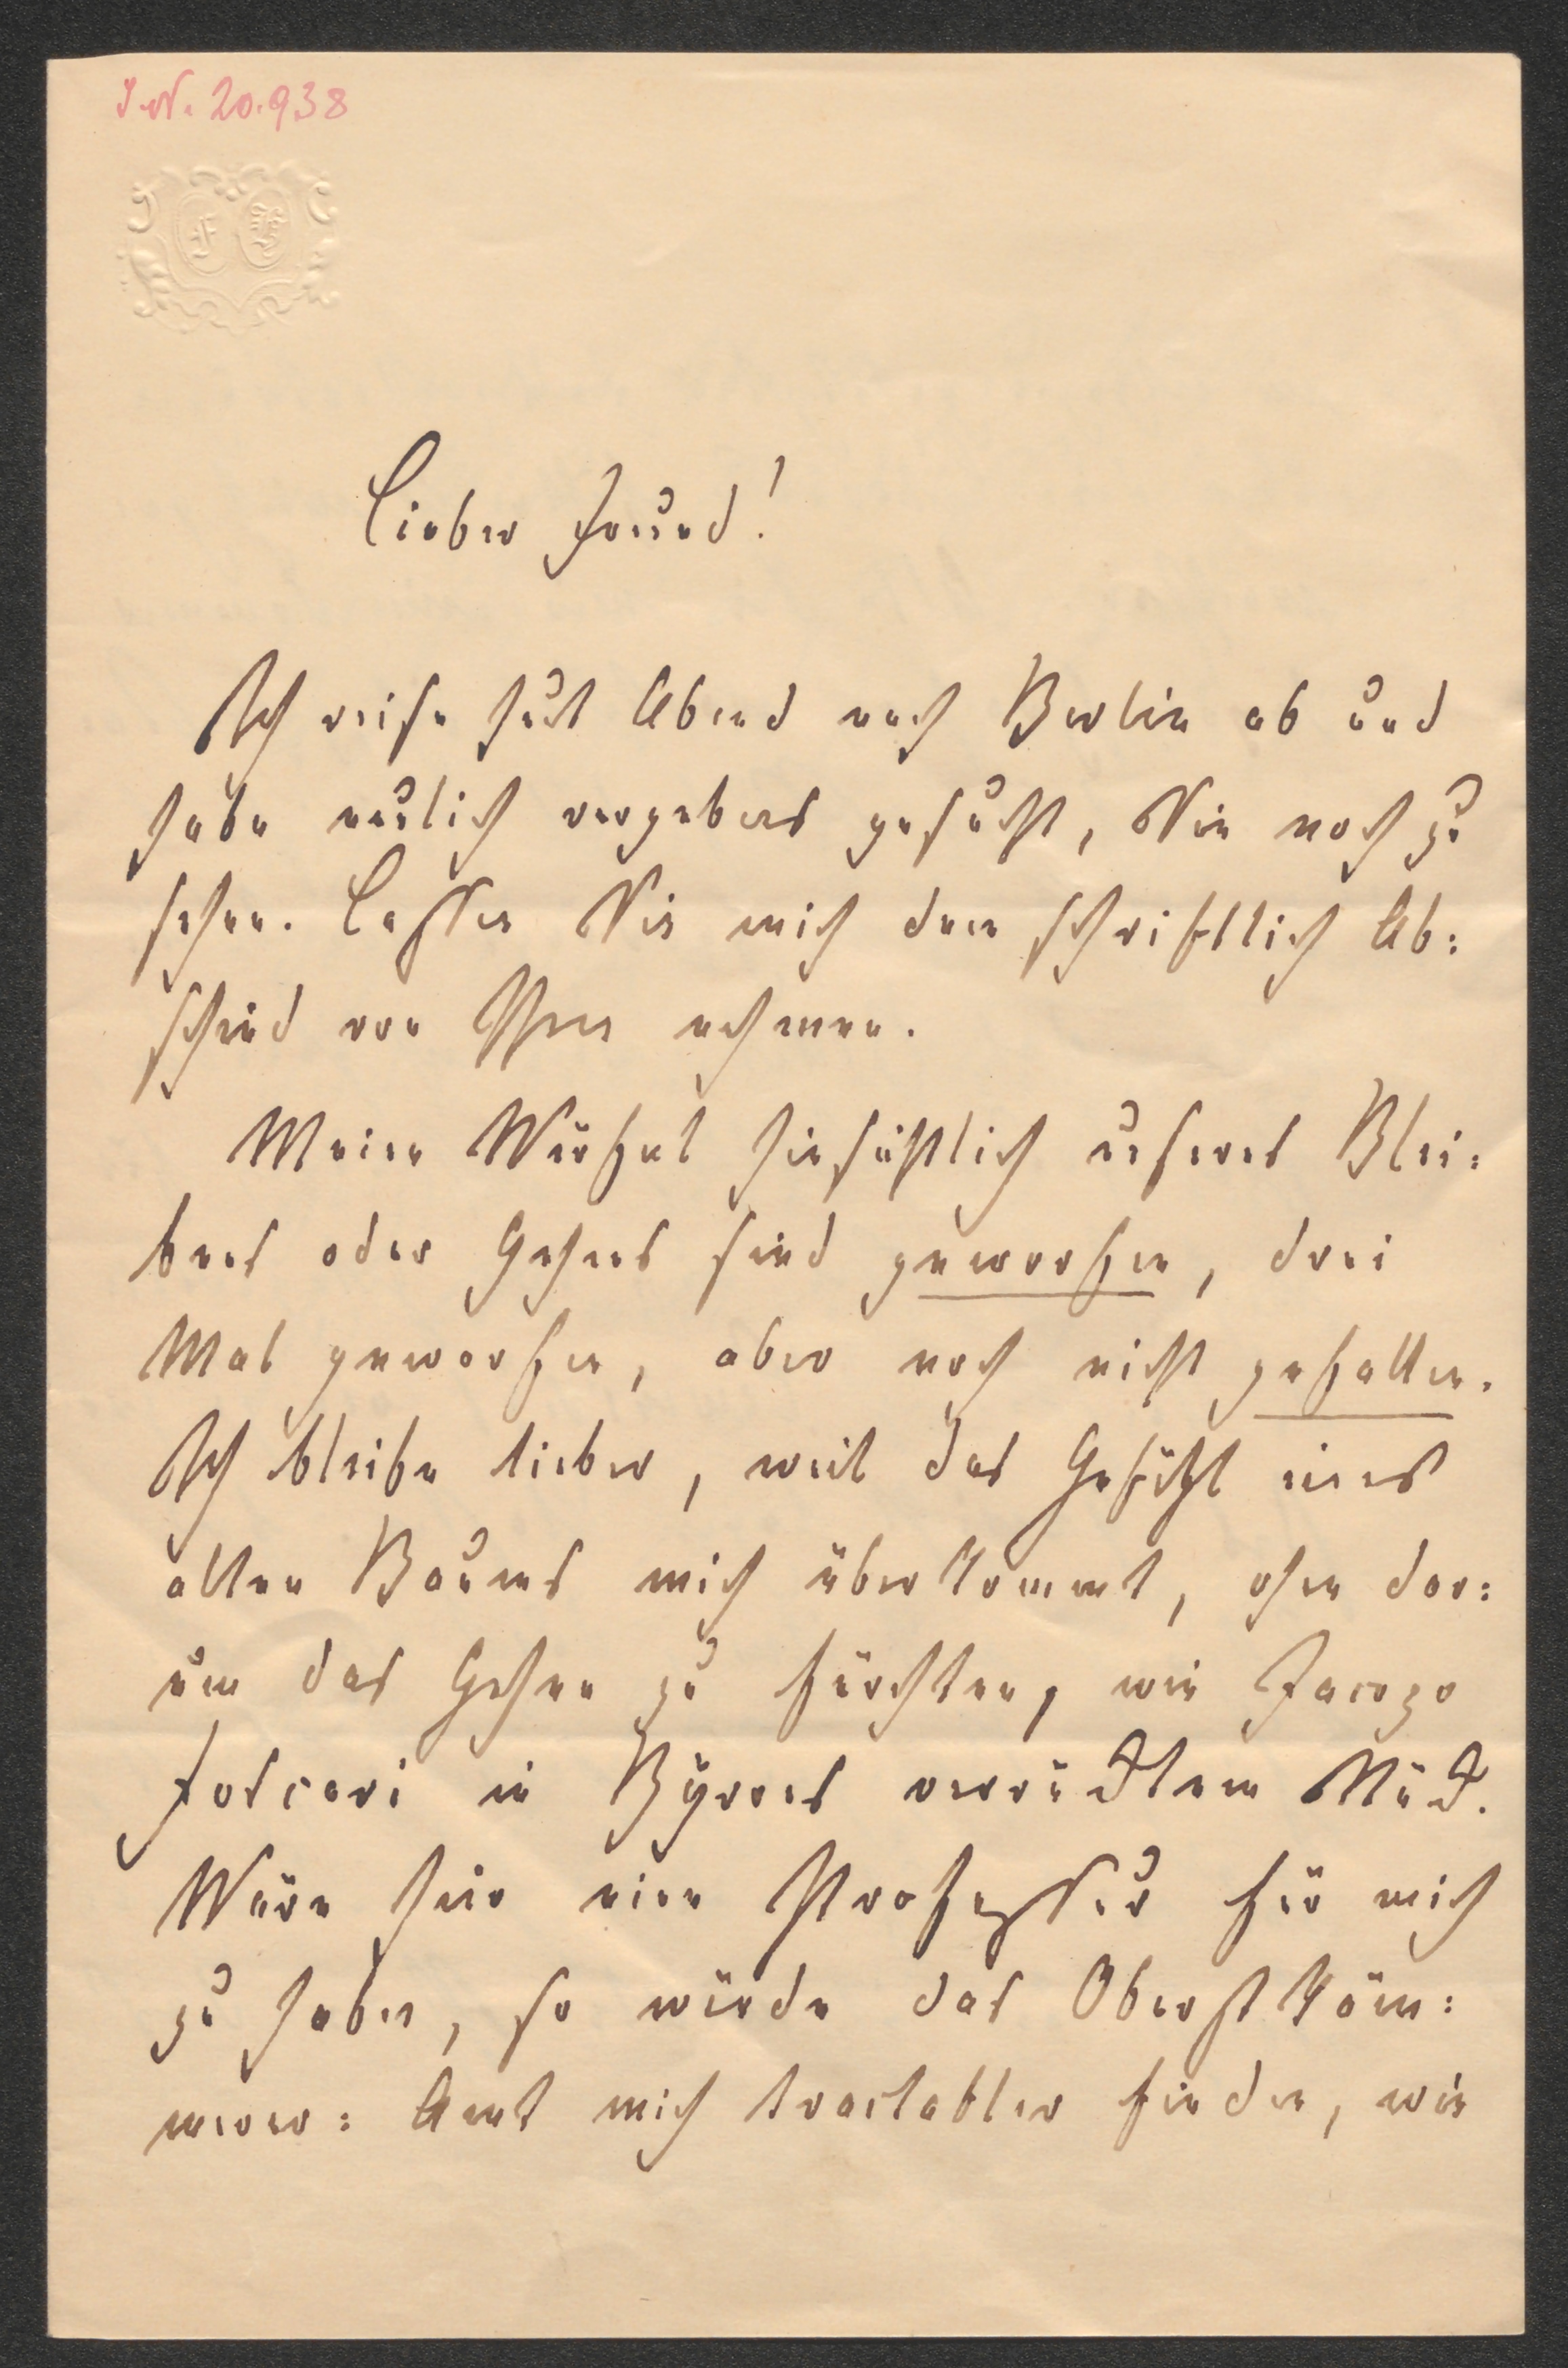 I. N. 20.938
Lieber Freund!
Ich reise heut Abend nach Berlin ab und
habe neulich vergebens gesucht, Sie noch zu
sehen. Lassen Sie mich denn schriftlich Ab:
schied von Ihnen nehmen.
Meine Würfel hinsichtlich unseres Blei:
bens oder Gehens sind geworfen, drei
Mal geworfen, aber noch nicht gefallen.
Ich bleibe lieber, weil das Gefühl eines
alten Baumes mich überkommt, ohne dar:
um das Gehen zu fürchten, wie Jacopo
Foscari in Byrons verrücktem Stück.
Wäre hier eine Professur für mich
zu haben, so würde das Oberstkäm:
merer: Amt mich tractabler finden, wie